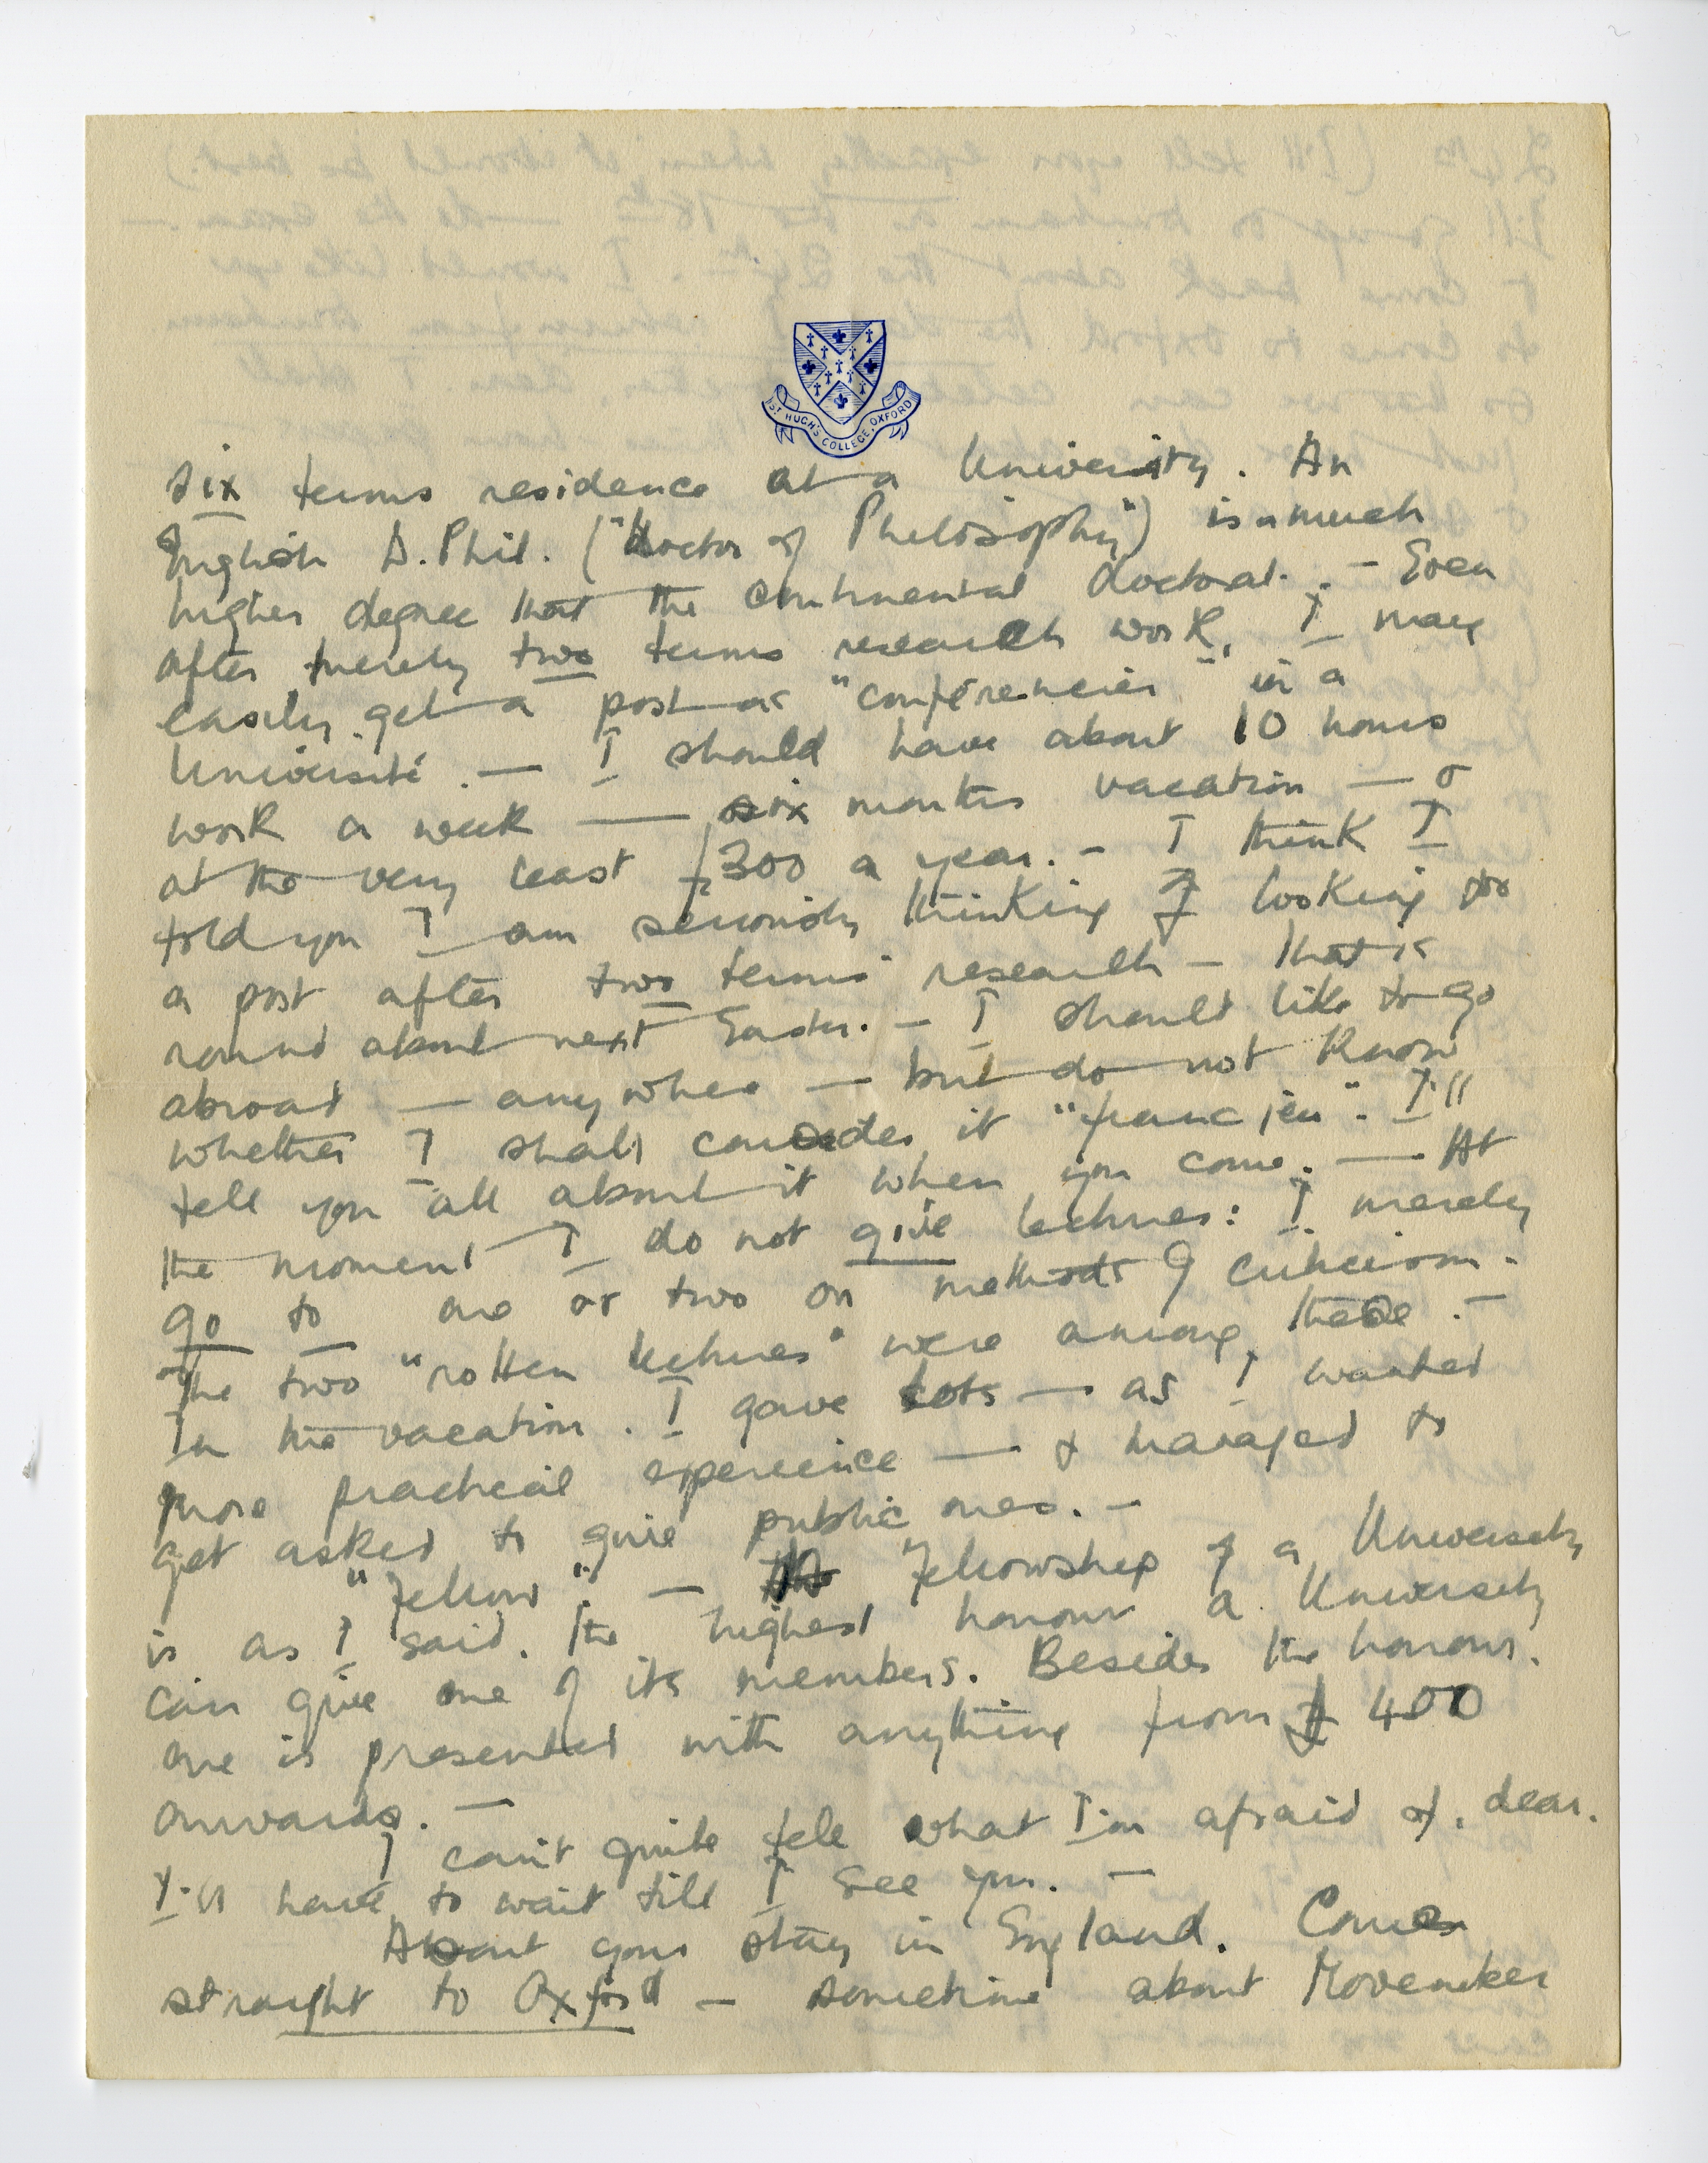 ST HUGH'S COLLEGE, OXFORD
six terms residence at a University. An
English D. Phil. ("Doctor of Philosophy") is a much
higher degree that the continental doctorat. - Even
after merely two terms research work, I may
easily get a post as "conférencier" in a
Université. — I should have about 10 hours
work a week — six months vacation — &
at the very least £300 a year. - I think I
told you I am seriously thinking of looking for
a post after two terms' research - that is
round about next Easter. - I should like to go
abroad — anywhere — but do not know
whether I shall consider it "franc jeu". I'll
tell you all about it when you come. — At
the moment I do not give lectures: I merely
go to one or two on methods of criticism.
The two "rotten lectures" were among these. -
In the vacation. I gave lots — as I wanted
more practical experience — & managed to
get asked to give public ones. -
"Fellow". - Fellowship of a University
is as I said. the highest honour a University
can give one of its members. Besides the honour.
one is presented with anything from £ 400
onwards. —
I can't quite tell what I'm afraid of. dear.
I'll have to wait till I see you. —
About your stay in England. Come
straight to Oxford - sometime about November